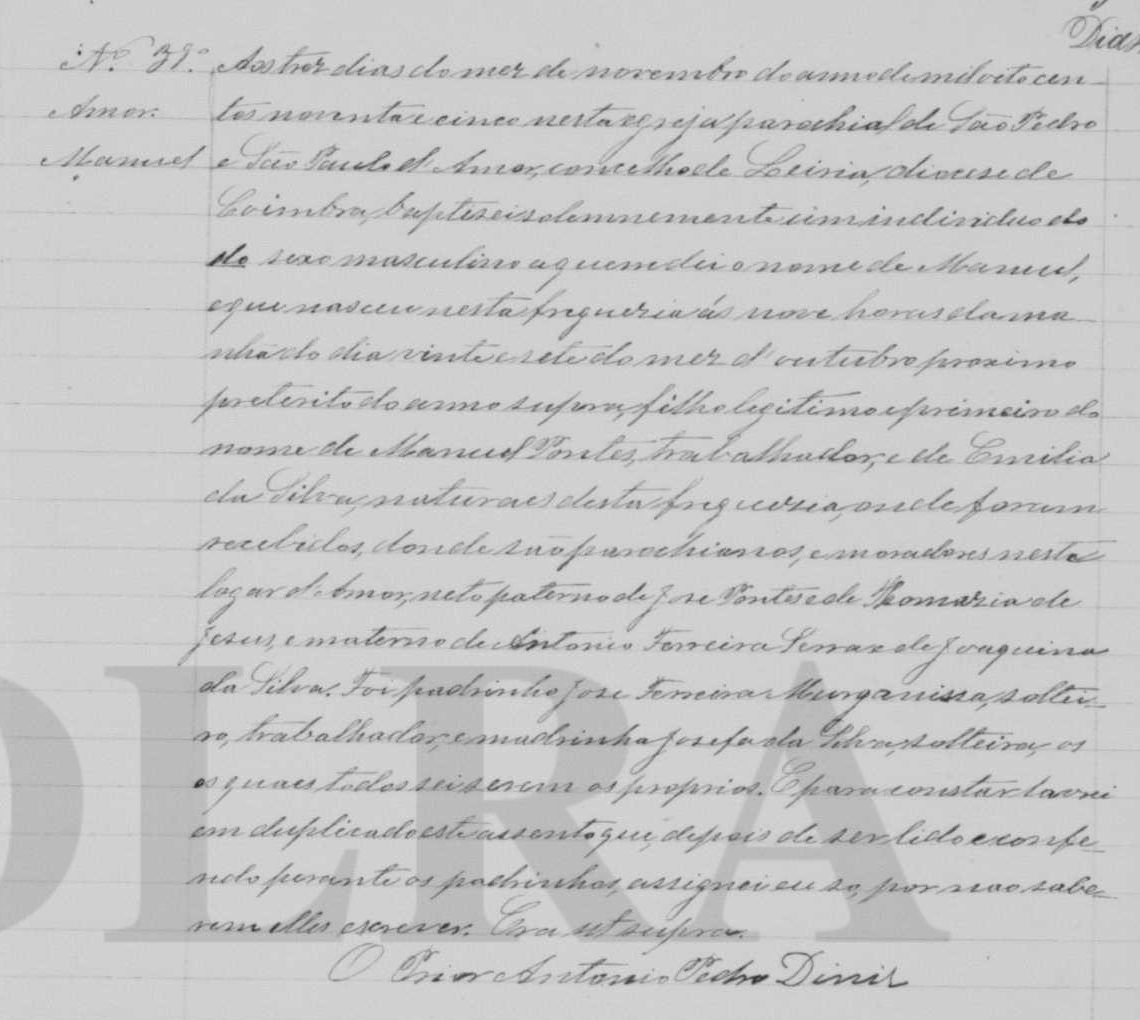 Dias
Nº 31º Aos trez dias do mez de novembro do anno de mil oito cen-
Amor. tos noventa e cinco nesta egreja parochial de São Pedro
Manuel e São Paulo d'Amor, concelho de Leiria, diocese de
Coimbra, baptisei solemnemente um individuo do
do sexo masculino a quem dei o nome de Manuel,
e que nasceu nesta freguezia ás nove horas da ma
nhã do dia vinte e sete do mez d'outubro proximo
preterito do anno supra, filho legitimo e primeiro do
nome de Manuel Pontes, trabalhador, e de Emilia
da Silva, naturaes desta freguezia, onde foram
recebidos, donde são parochianos, e moradores neste
logar d'Amor, neto paterno de Jose Pontes e de Romazia de
Jesus, e materno de Antonio Ferreira Serra e de Joaquina
da Silva. Foi padrinho Jose Ferreira Murganissa, soltei-
ro, trabalhador, e madrinha Josefa da Silva, solteira, os
os quaes todos sei serem os proprios. E para constar lavrei
em duplicado este assento que, depois de ser lido e confe-
rido perante os padrinhos, assignei eu só, por não sabe-
rem elles escrever. Era ut supra.
O Prior Antonio Pedro Diniz
OLRA